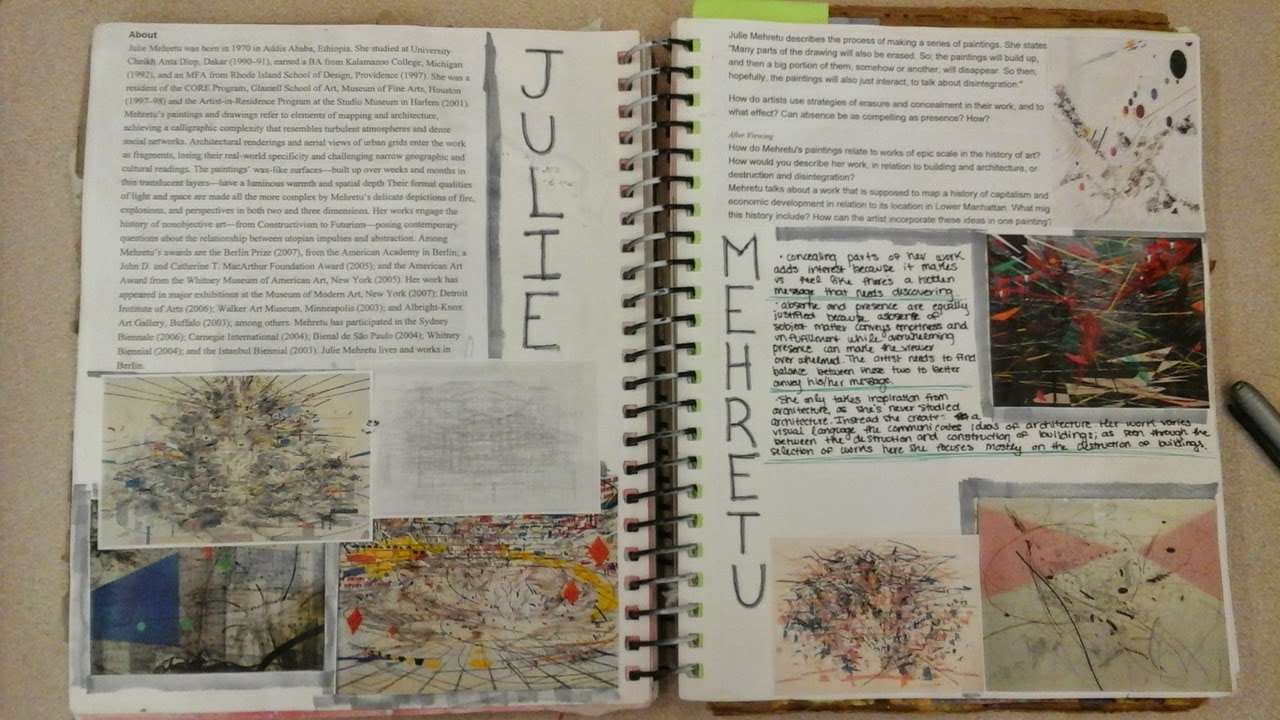 About
Julie Mehretu was born in 1970 in Addis Ababa, Ethiopia. She studied at University
Cheikh Anta Diop, Dakar (1990–91), earned a BA from Kalamazoo College, Michigan
(1992), and an MFA from Rhode Island School of Design, Providence (1997). She was a
resident of the CORE Program, Glassell School of Art, Museum of Fine Arts, Houston
(1997–98) and the Artist-in-Residence Program at the Studio Museum in Harlem (2001).
Mehretu's paintings and drawings refer to elements of mapping and architecture,
achieving a calligraphic complexity that resembles turbulent atmospheres and dense
social networks. Architectural renderings and aerial views of urban grids enter the work
as fragments, losing their real-world specificity and challenging narrow geographic and
cultural readings. The paintings' wax-like surfaces—built up over weeks and months in
thin translucent layers—have a luminous warmth and spatial depth Their formal qualities
of light and space are made all the more complex by Mehretu's delicate depictions of fire,
explosions, and perspectives in both two and three dimensions. Her works engage the
history of nonobjective art—from Constructivism to Futurism—posing contemporary
questions about the relationship between utopian impulses and abstraction. Among
Mehretu's awards are the Berlin Prize (2007), from the American Academy in Berlin; a
John D. and Catherine T. MacArthur Foundation Award (2005); and the American Art
Award from the Whitney Museum of American Art, New York (2005). Her work has
appeared in major exhibitions at the Museum of Modern Art, New York (2007); Detroit
Institute of Arts (2006); Walker Art Museum, Minneapolis (2003); and Albright-Knox
Art Gallery, Buffalo (2003); among others. Mehretu has participated in the Sydney
Biennale (2006); Carnegie International (2004); Bienal de São Paulo (2004); Whitney
Biennial (2004); and the Istanbul Biennial (2003). Julie Mehretu lives and works in
Berlin.
JULIE
Julie Mehretu describes the process of making a series of paintings. She states
"Many parts of the drawing will also be erased. So, the paintings will build up,
and then a big portion of them, somehow or another, will disappear. So then,
hopefully, the paintings will also just interact, to talk about disintegration."
How do artists use strategies of erasure and concealment in their work, and to
what effect? Can absence be as compelling as presence? How?
After Viewing
How do Mehretu's paintings relate to works of epic scale in the history of art?
How would you describe her work, in relation to building and architecture, or
destruction and disintegration?
Mehretu talks about a work that is supposed to map a history of capitalism and
economic development in relation to its location in Lower Manhattan. What mig
this history include? How can the artist incorporate these ideas in one painting?
MEHRETU
· concealing parts of her work
adds interest because it makes
us feel like there's a hidden
message that needs discovering
· absense and presence are equally
justified because absense of
subject matter conveys emptiness and
unfulfilment while overwhelming
presence can make the viewer
overwhelmed. The artist needs to find
balance between those two to better
convey his/her message.
· She only takes inspiration from
architecture, as she's never studied
architecture. Instead she create a
visual language the communicates ideas of architecture. Her work varies
between the destruction and construction of buildings; as seen through the
selection of works here she focuses mostly on the destruction of buildings.